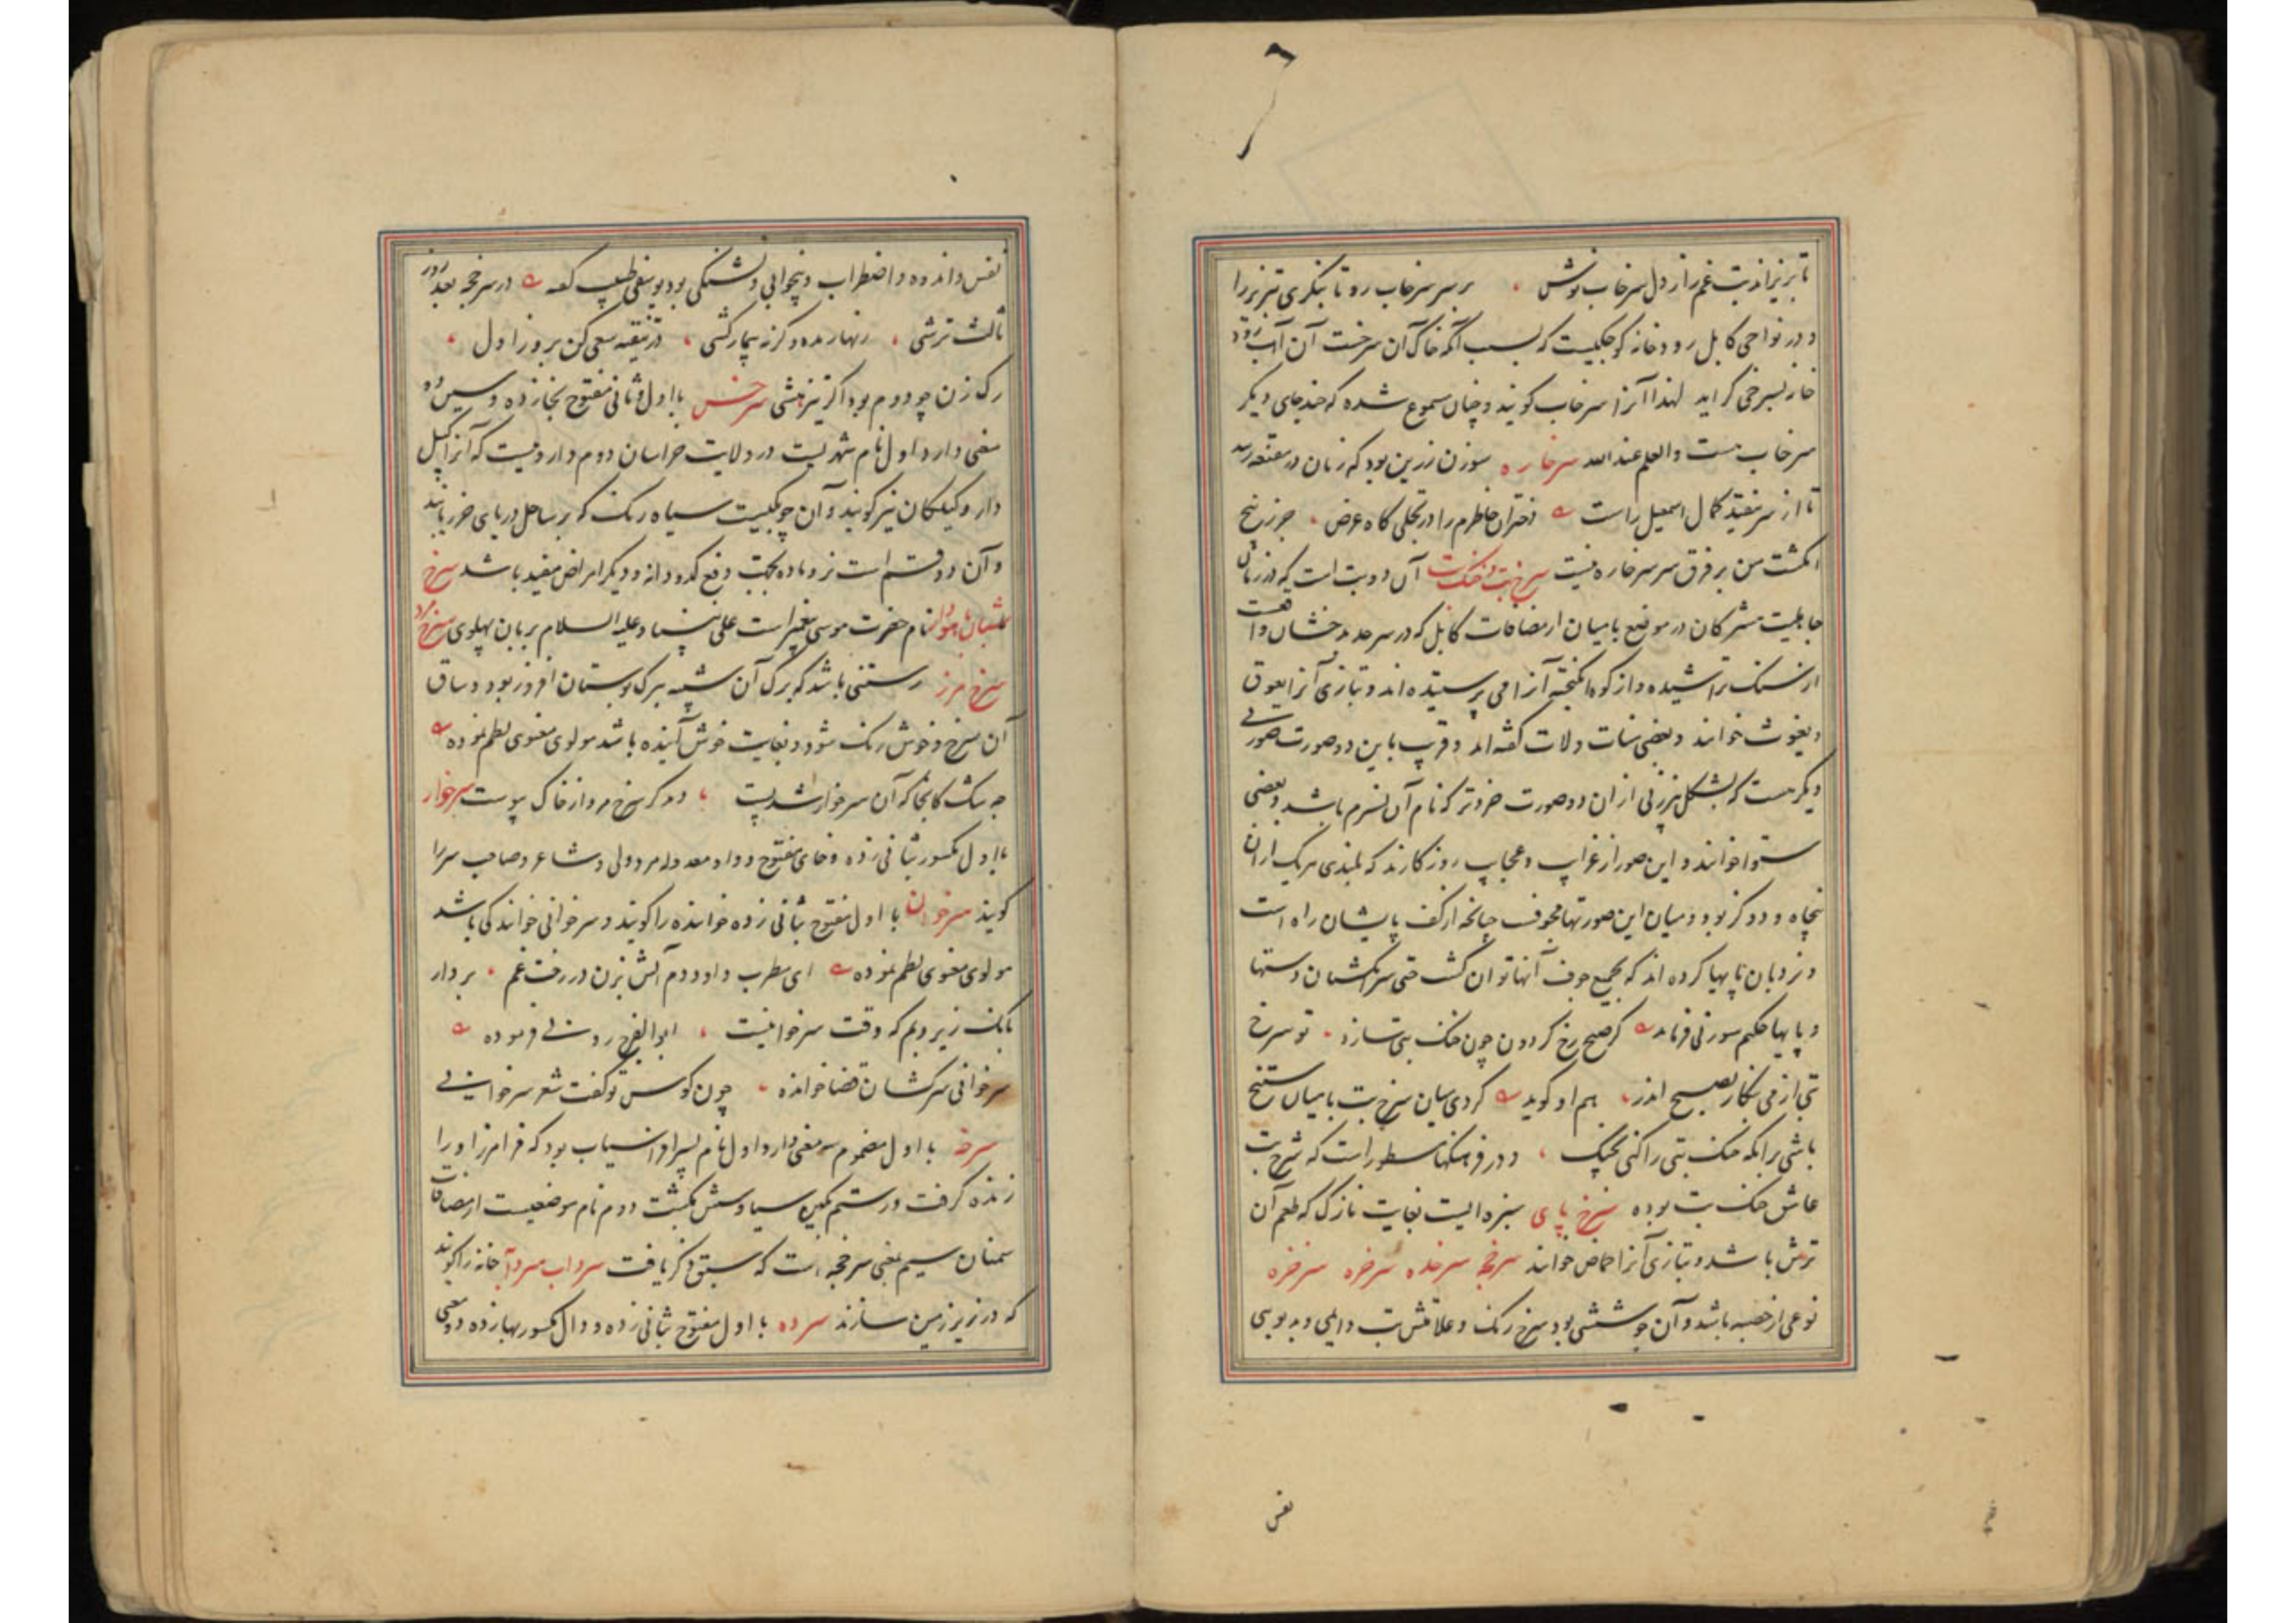 تا بریزاند بت غم را ز دل سرخاب نوش ، بر سر سرخاب رو تا بنگری تبریز را
و در نواحی کابل رودخانه کوچکیست که بسبب آنکه خاک آن سرخست آن آب رود
خانه بسرخی گراید لهذا آنرا سرخاب گویند و چنان مسموع شده که چند جای دیگر
سرخاب هست والعلم عند الله سرخاره سوزن زرین بود که زنان در مقنعه زنند
تا از سر نیفتد کمال اسمعیل راست دختران خاطرم را در تجلی گاه عرض ، جز زنخ
انگشت من بر فرق سر سرخاره نیست سرخ بت و خنک بت آن دو بت است که در زمان
جاهلیت مشرکان در موضع بامیان از مضافات کابل که در سرحد بدخشان واقعست
از سنگ تراشیده و از کوه انگیخته آنرا می پرستیده اند و بتازی آنرا یعوق
و یغوث خوانند و بعضی منات و لات گفته اند و قریب باین دو صورت صورتی
دیگر هست که بشکل پیرزنی از ان دو صورت خردتر که نام آن نسرم باشد و بعضی
ستوا خوانند و این صور از غرایب و عجایب روزگارند که بلندی هریک از ان
پنجاه و دو گز بود و میان این صورتها مجوف چنانچه از کف پایشان راه است
و نردبان پایها کرده اند که بجمیع جوف آنها توان گشت حتی سر انگشتان دستها
و پایها حکیم سوزنی فرماید گر صبح رخ گردون چون خنک بتی سازد ، تو سرخ
بتی از می بنگار بصبح اندر ، هم او گوید کردی بیان سرخ بت بامیان سنخ
باشی بر انکه خنک بتی را کنی نخپک ، و در فرهنگها مسطور است که سرخ بت
عاشق خنک بت بوده سرخ پای سبزه ایست بغایت نازک که طعم آن
ترش باشد و بتازی آنرا حماض خوانند سرخجه سرخده سرخزه سرخژه
نوعی از حصبه باشد و آن جوششی بود سرخ رنگ و علامتش تب دایمی و بد بویی
نفس
نفس و اندوه و اضطراب و بیخوابی و تشنگی بود یوسفی طبیب گفته در سرخجه بعد روز
ثالث ترشی ، زنهار مده وگرنه بیمار کشی ، در تنقیه سعی کن بروز اول ،
رگ زن چو دوم بود اگر تیز هشی سرخس با اول و ثانی مفتوح بخا زده و سین دو
معنی دارد اول نام شهریست در ولایت خراسان دوم داروئیست که آنرا کیل
دارو و کیلکان نیز گویند و آن چوبکیست سیاه رنگ که بر ساحل دریای خزر یابند
و آن دو قسم است نر و ماده بجهت دفع کدودانه و دیگر امراض مفید باشد سرخ
شبان باهودار نام حضرت موسی پیغمبر است علی نبینا و علیه السلام بزبان پهلوی سرخ مرد
سرخ مرز رستنی باشد که برگ آن شبیه ببرگ بوستان افروز بود و ساق
آن سرخ و خوش رنگ شود و بغایت خوش آینده باشد مولوی معنوی نظم نموده
چه شک کانجا که آن سرخوار شد پست ، دمد گر سرخ مرد از خاک پیوست سرخوار
با اول مکسور بثانی زده و خای مفتوح و واو معدوله مرد ولی و شاعر و صاحب سر را
گویند سرخوان با اول مفتوح بثانی زده خواننده را گویند و سرخوانی خوانندگی باشد
مولوی معنوی نظم نموده ای مطرب داود دم آتش بزن در رخت غم ، بردار
بانگ زیر و بم که وقت سرخوانیست ، ابوالفرج رونی فرموده
سرخوانی سرکشان قضا خوانده ، چون کوس تو گفت شعر سرخوانی
سرخه با اول مضموم سه معنی دارد اول نام پسر افراسیاب بود که فرامرز او را
زنده گرفت و رستم بکین سیاوش بکشت دوم نام موضعیست از مضافات
سمنان سیم بمعنی سرخجه است که سبق ذکر یافت سرداب سرد آبه خانه را گویند
که در زیر زمین سازند سرده با اول مفتوح بثانی زده و دال مکسور بها زده دو معنی